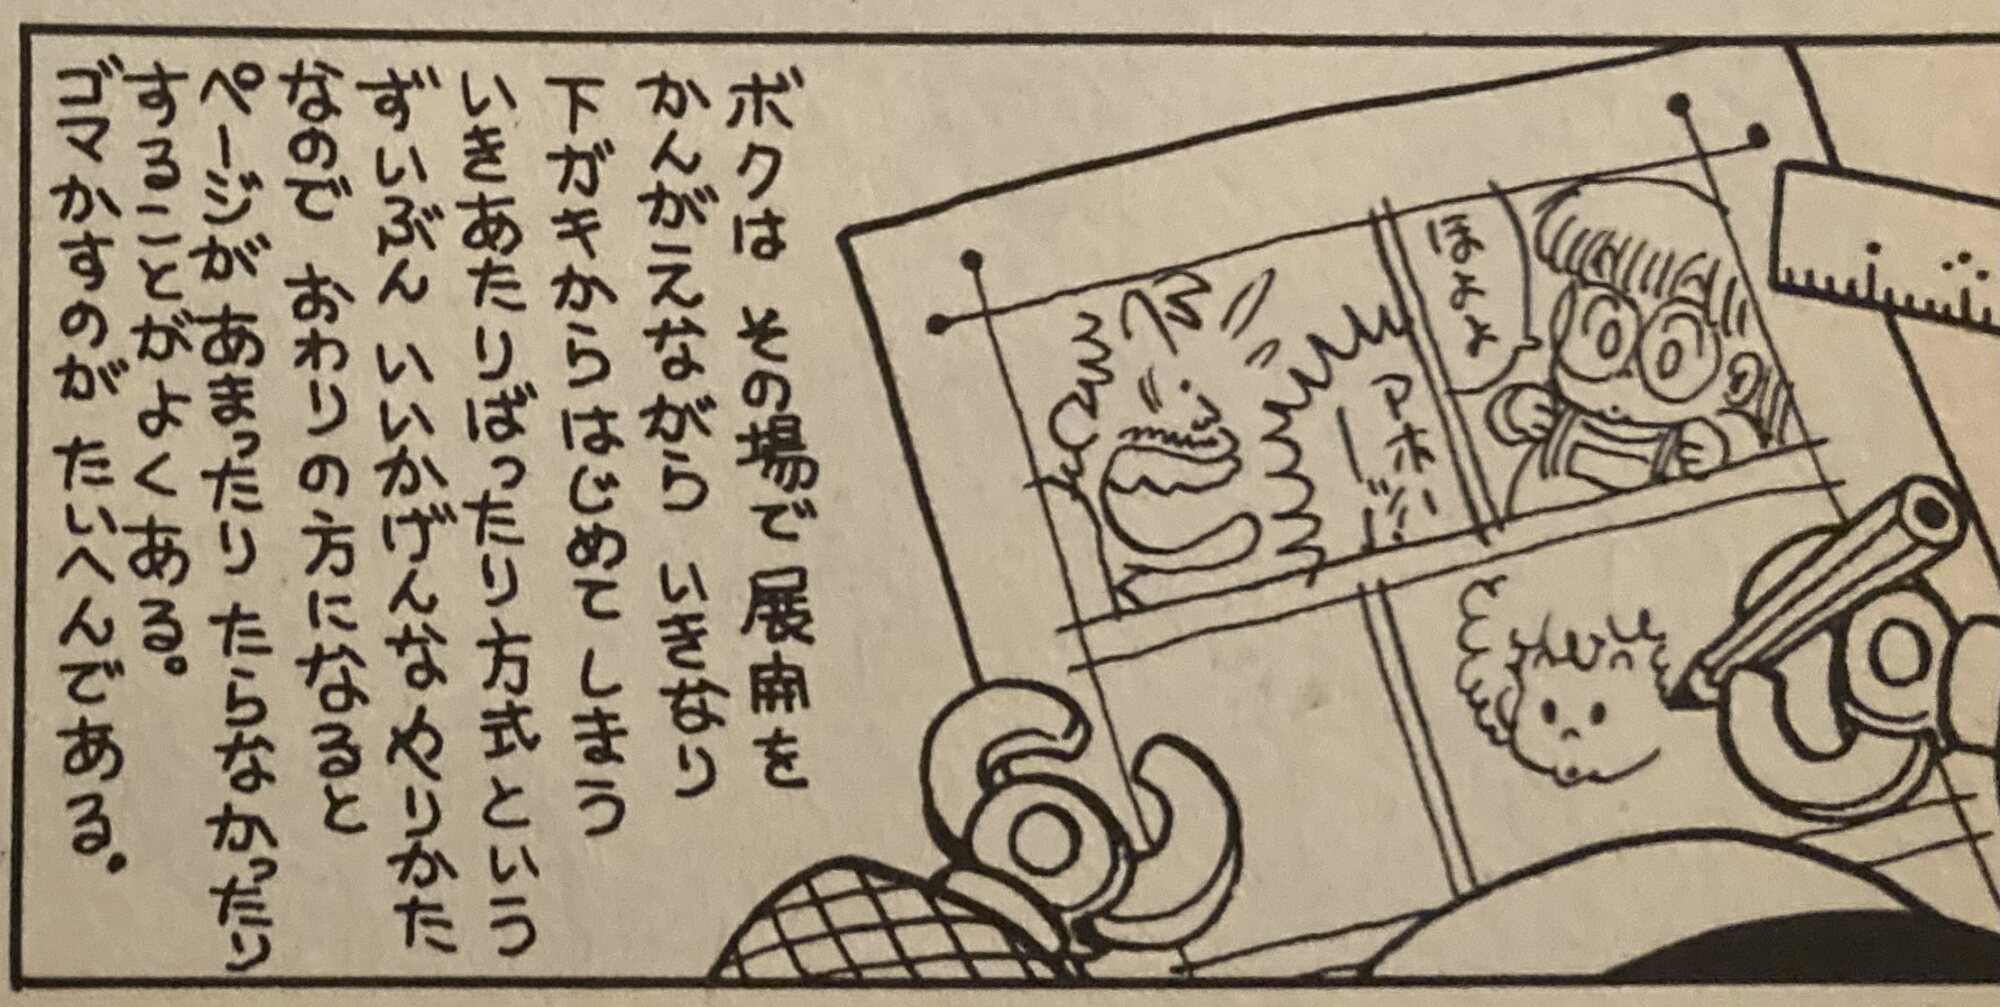 ボクは その場で 展開を
かんがえながら いきなり
下ガキからはじめて しまう
いきあたりばったり方式という
ずいぶん いいかげんな やりかた
なので おわりの方になると
ページが あまったり たらなかったり
することがよくある。
ゴマかすのが たいへんである。
ほよよ
アホーッ!